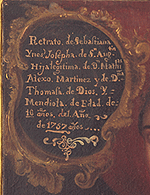 Retrato, de Sebastiana
Ynes Josepha. de S. Aug.n
Hija legitima, de D. Mathi
Alexo, Martinez y de D.a
Thomasa. de Dios, Y
Mendiola, de Edad. de
16 años, del Año.
de 1757 años